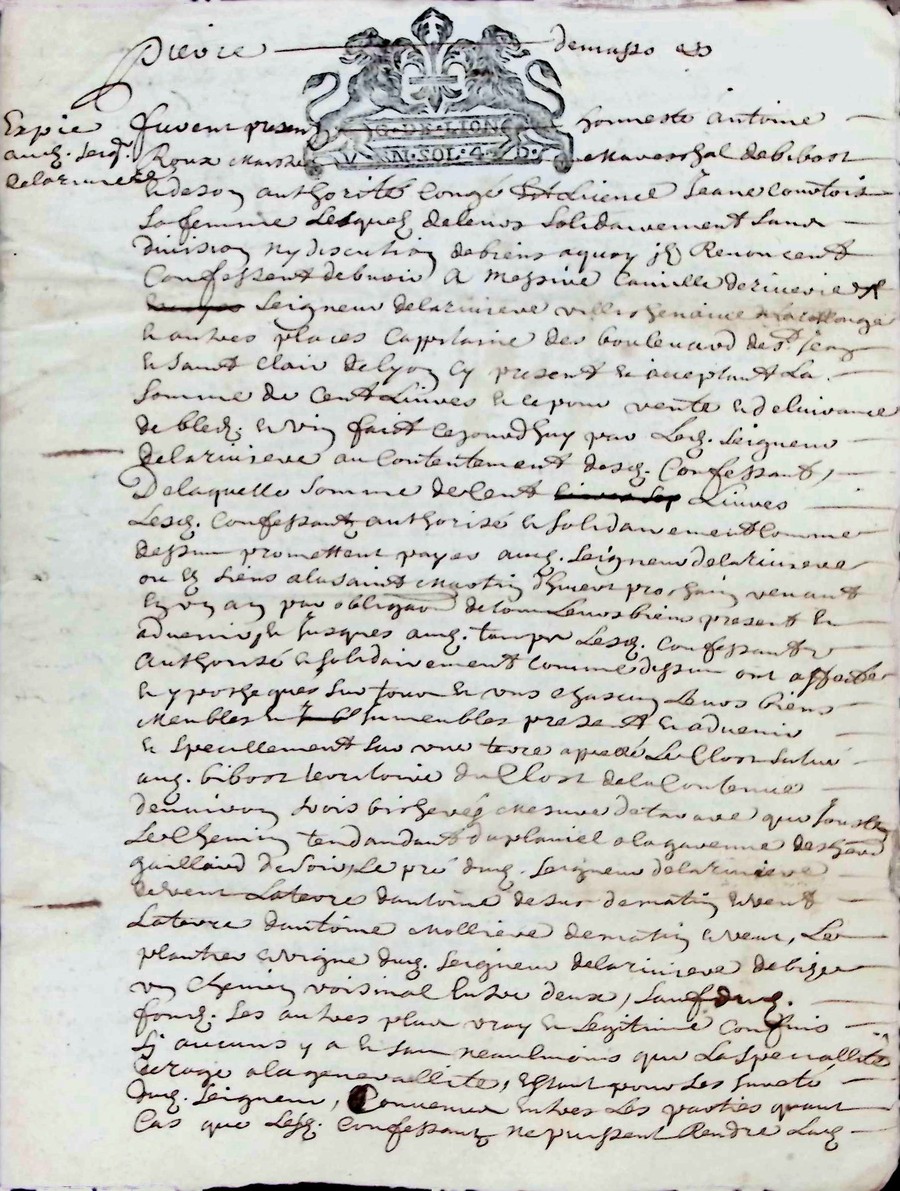 pierre demasso
G. DE. LION
VN. SOL. 4. D.
Expié
aud. seigr
delariuiere
furent presen honneste antoine
Roux mareschal debibost
& de son authorité Congé & Licence Jeane Comtois
sa femme Lesquelz deleurs solidairement sans
diuision ny discution debiens aquoy ilz Renoncent
Confessent debuoir A Messire Camille deriuerie
seigneur delariuiere
& autres places Cappitaine des boulevard de st Jean
& saint Clair de lyon Cy present & acceptant La
somme de Cent Liures & ce pour vente & deliurance
de bled & vin faict cejourdhuy par Led. seigneur
delariuiere au Contentement desd. Confessant,
Delaquelle somme de Cent Liures
Lesd. Confessant authorisé & solidairement Comme
dessus promettent payer aud. seigneur delariuiere
ou es siens alasaint Martin dhiuert prochain venant
en vn an par obligaon de tous Leurs biens present &
aduenir, & jusques aud. temps Lesd. Confessant
authorisé & solidairement Comme dessus ont affecté
& ypothequés sur tous & vns chascun Leurs biens
meubles & Immeubles present & aduenir
& speciallement sur vne terre appellé Le Clost situé
aud. bibost territoire du Clost dela
denuiron trois bicherés mesure de tarare que Jouste
Le Chemin tendandant du planiel alagarenne des
gaillard de soir, Le pré dud. seigneur delariuiere
de vent Laterre dantoine desur de matin & vent
Laterre dantoine Molliere de matin & vent, Les
plantier & vigne dud. seigneur delariuiere de bize
vn Chemin voisinal entre deux, sauf dud.
fond. ses autres plus vray & legitime Confins
sy aucuns y a & sans neaulmoins que Laspeciallité
deroge alagenerallité, & pour Les sureté
dud. seigneur, Conuenu entres Les parties quaut
Cas que Lesd. Confessant ne puissent Rendre Lad.